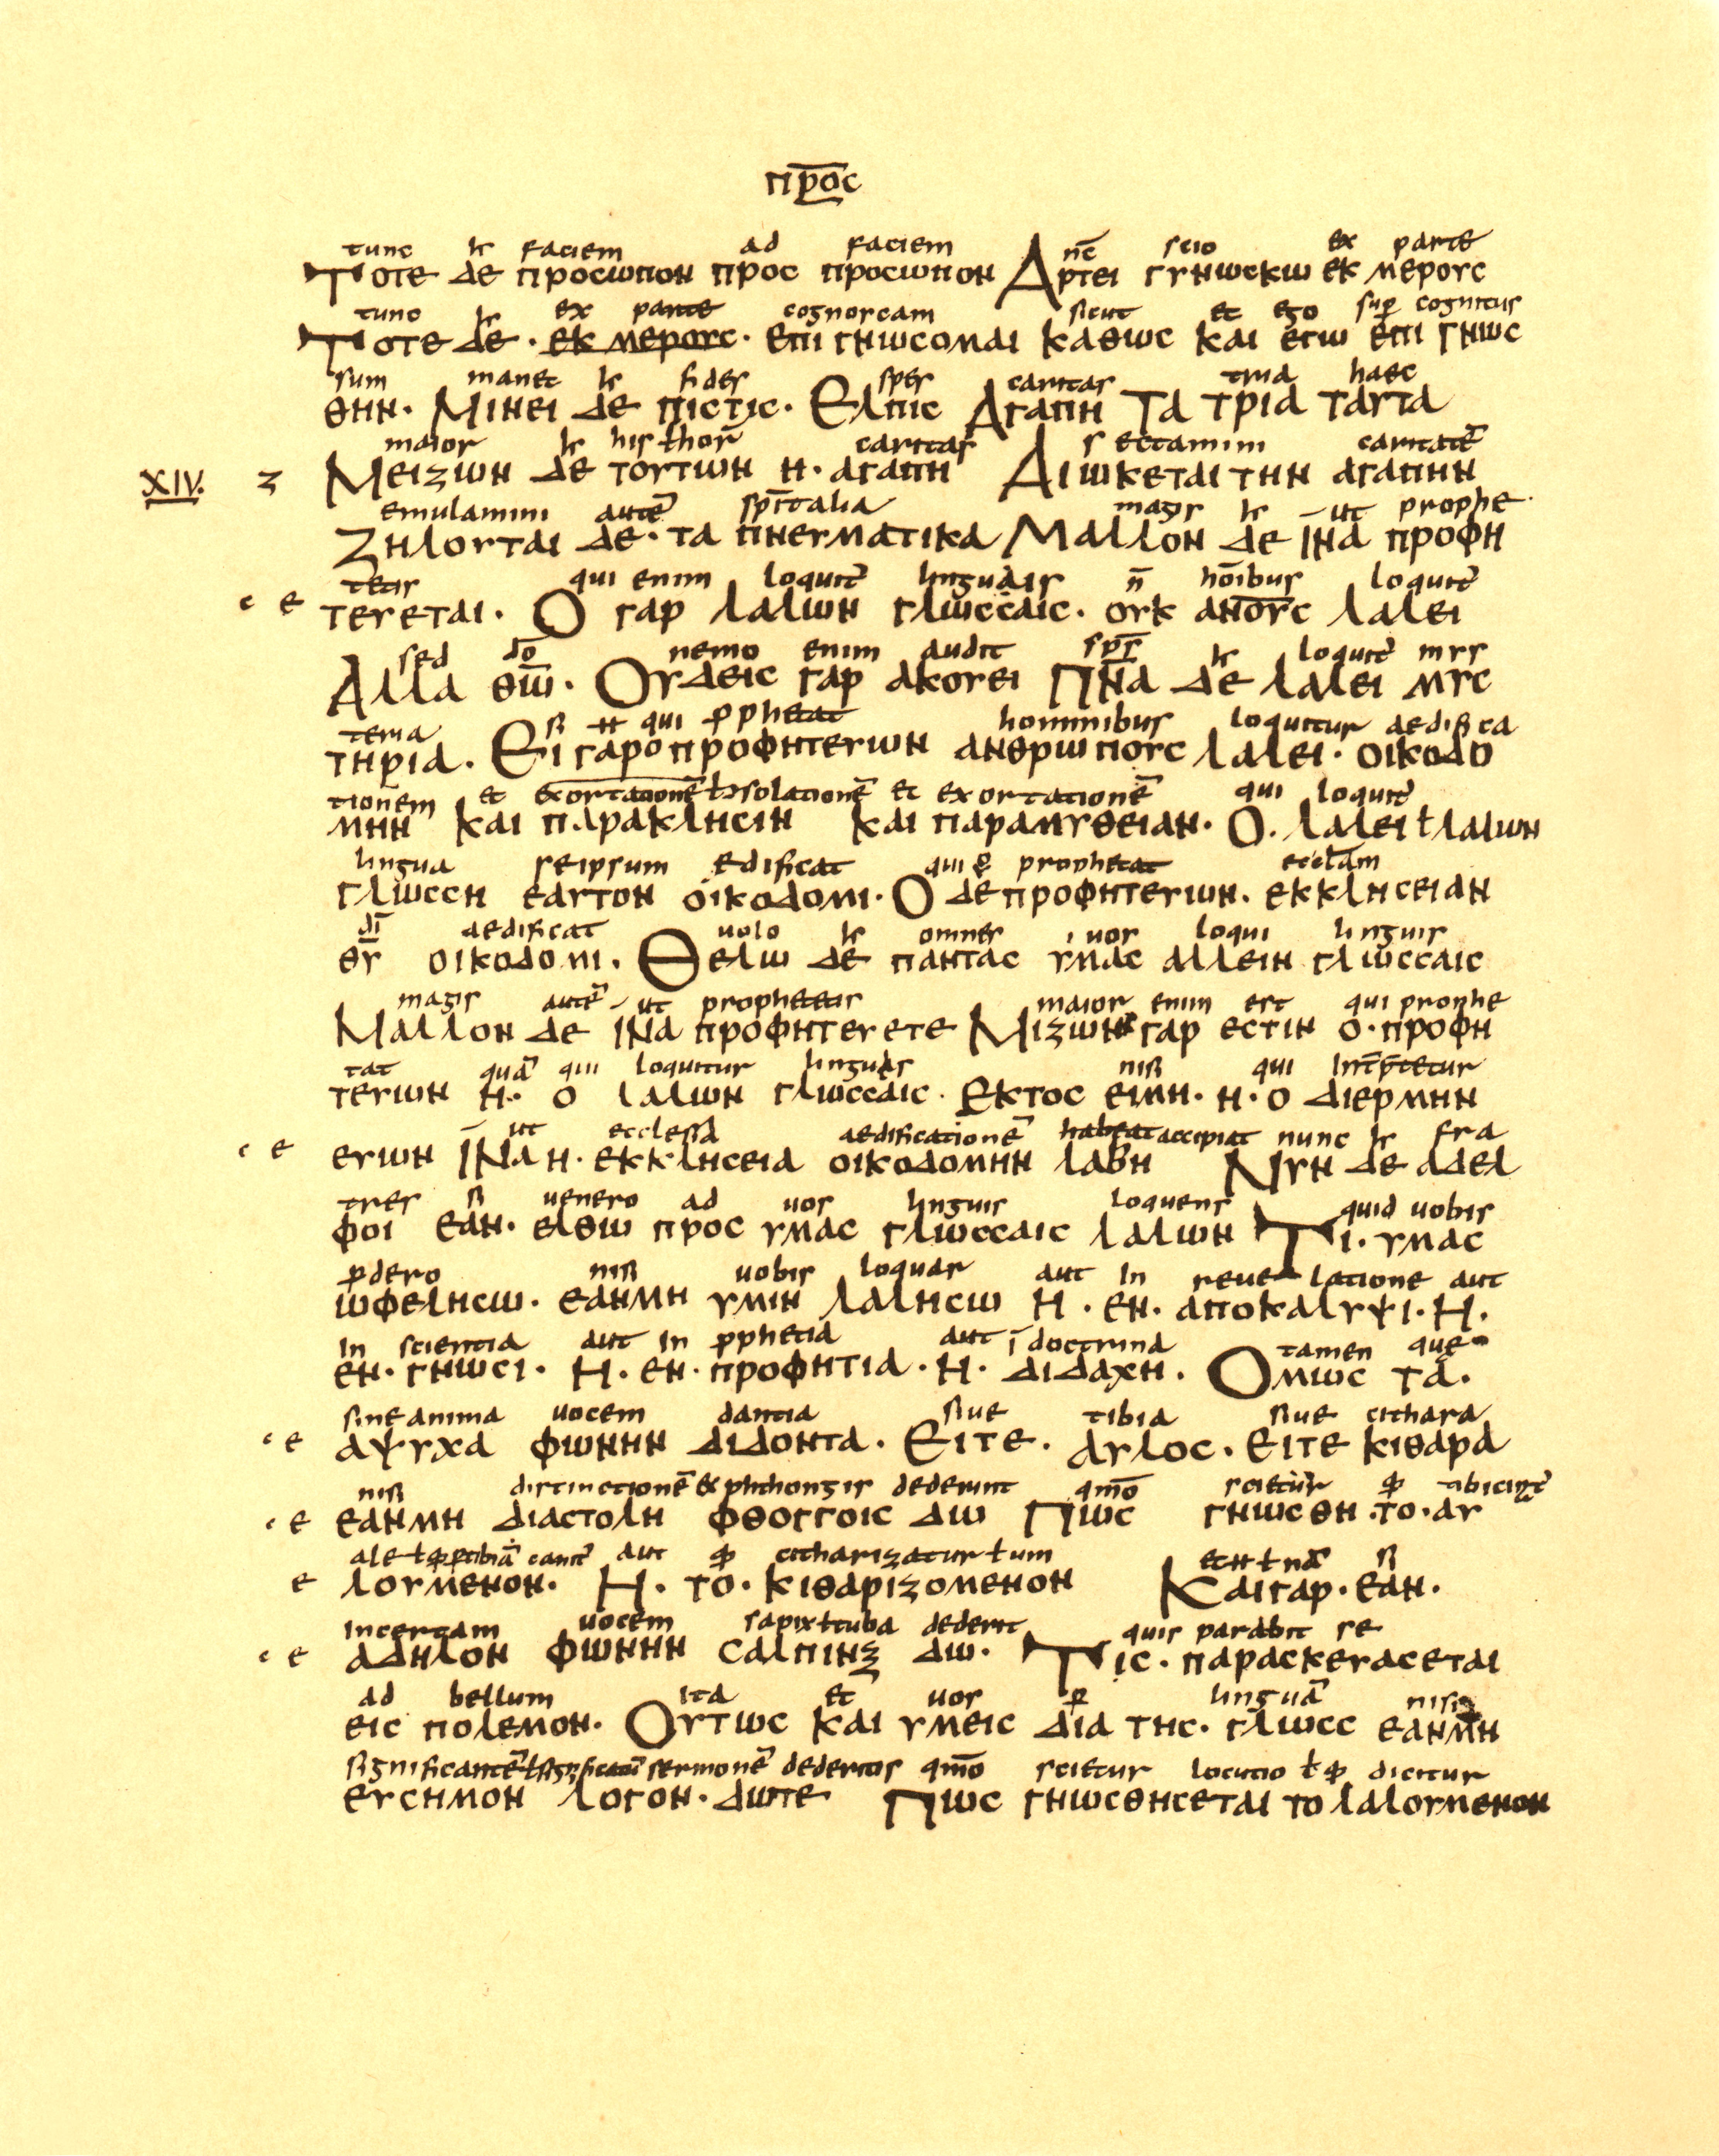 προς
tunc hr faciem ad faciem nc scio ex parte
Τοτε δε προσωπον προς προσωπον Αρτει γυνωσκω εκ μερους
tunc hr ex parte cognoscam sicut et ego sup cognitus
Τοτε δε · εκ μερους · επι γνωσομαι καθως και εγω επι γνωσ
sum manet hr fides spes caritas tria haec
θην · Μινει δε πιστις · Ελπις Αγαπη Τα τρια ταυτα
maior hr his t hor caritas sectamini caritate
XIV. Μειζων δε τουτων η · αγαπη Διωκεται την αγαπην
emulamini aute spitalia magis hr ut prophe
Ζηλουται δε · τα πνευματικα Μαλλον δε ινα προφη
tetis qui enim loquit linguais n hoibus loquit
c ε τευεται · Ο γαρ λαλων γλωσσαις · ουκ ανους λαλει
sed do nemo enim audit sps hr loquit mys
Αλλα θω · Ουδεις γαρ ακουει Πνα δε λαλει μυς
teria si qui pphetat hominibus loquitur aedifica
τηρια · Ει γαρ ο προφητευων ανθρωπους λαλει · οικοδο
tionem et exortatione t solatione et exortatione qui loquit
μην και παρακλησιν και παραμυθειαν · Ο · λαλει t λαλων
lingua seipsum edificat qui prophetat ecclam
γλωσση εαυτον οικοδομι · Ο δε προφητευων · εκκλησειαν
di aedificat uolo hr omnes uos loqui linguis
θυ οικοδομι · Θελω δε παντας υμας λλλειν γλωσσαις
magis aute ut prophetetis maior enim est qui prophe
Μαλλον δε ινα προφητευετε Μιζων γαρ εστιν ο · προφη
tat qua qui loquitur linguis nisi qui intptetur
τευων η · ο λαλων γλωσσαις · Εκτος ειμη · η · ο διερμην
ut ecclesia aedificatione habeat accipiat nunc hr fra
c ε ευων ινα η · εκκλησεια οικοδομην λαβη Νυν δε αδελ
tres si uenero ad uos linguis loquens quid uobis
φοι εαν · ελθω προς υμας γλωσσαις λαλων Τι · υμας
pdero nisi uobis loquar aut in reuelatione aut
ωφελησω · εανμη υμιν λαλησω Η · εν · αποκαλυψι · Η ·
in scientia aut in pphetia aut i doctrina tamen que
εν · γνωσι · Η · εν · προφητια · Η · διδαχη · Ομως τα ·
sine anima uocem dantia siue tibia siue cithara
c ε αψυχα φωνην διδοντα · Ειτε · αυλος · ειτε κιθαρα
nisi distinctione phthongis dederint qmo scietur tibicint
c ε εανμη διαστολη φθογγοις δω Πως γνωσθη · το · αυ
cantt aut citharizatur t um si
ε λουμενον · Η · το · κιθαριζομενον Και γαρ · εαν ·
incertam uocem tuba dederit quis parabit se
c ε αδηλον φωνην σαλπινξ δω · Τις · παρασκευασεται
ad bellum ita et uos p lingua nisi
εις πολεμον · Ουτως και υμεις δια της · γλωσσ εανμη
significante sermone dederitis qmo scietur locutio t dicitur
ευσημον λογον · δωτε Πως γνωσθησεται το λαλουμενον